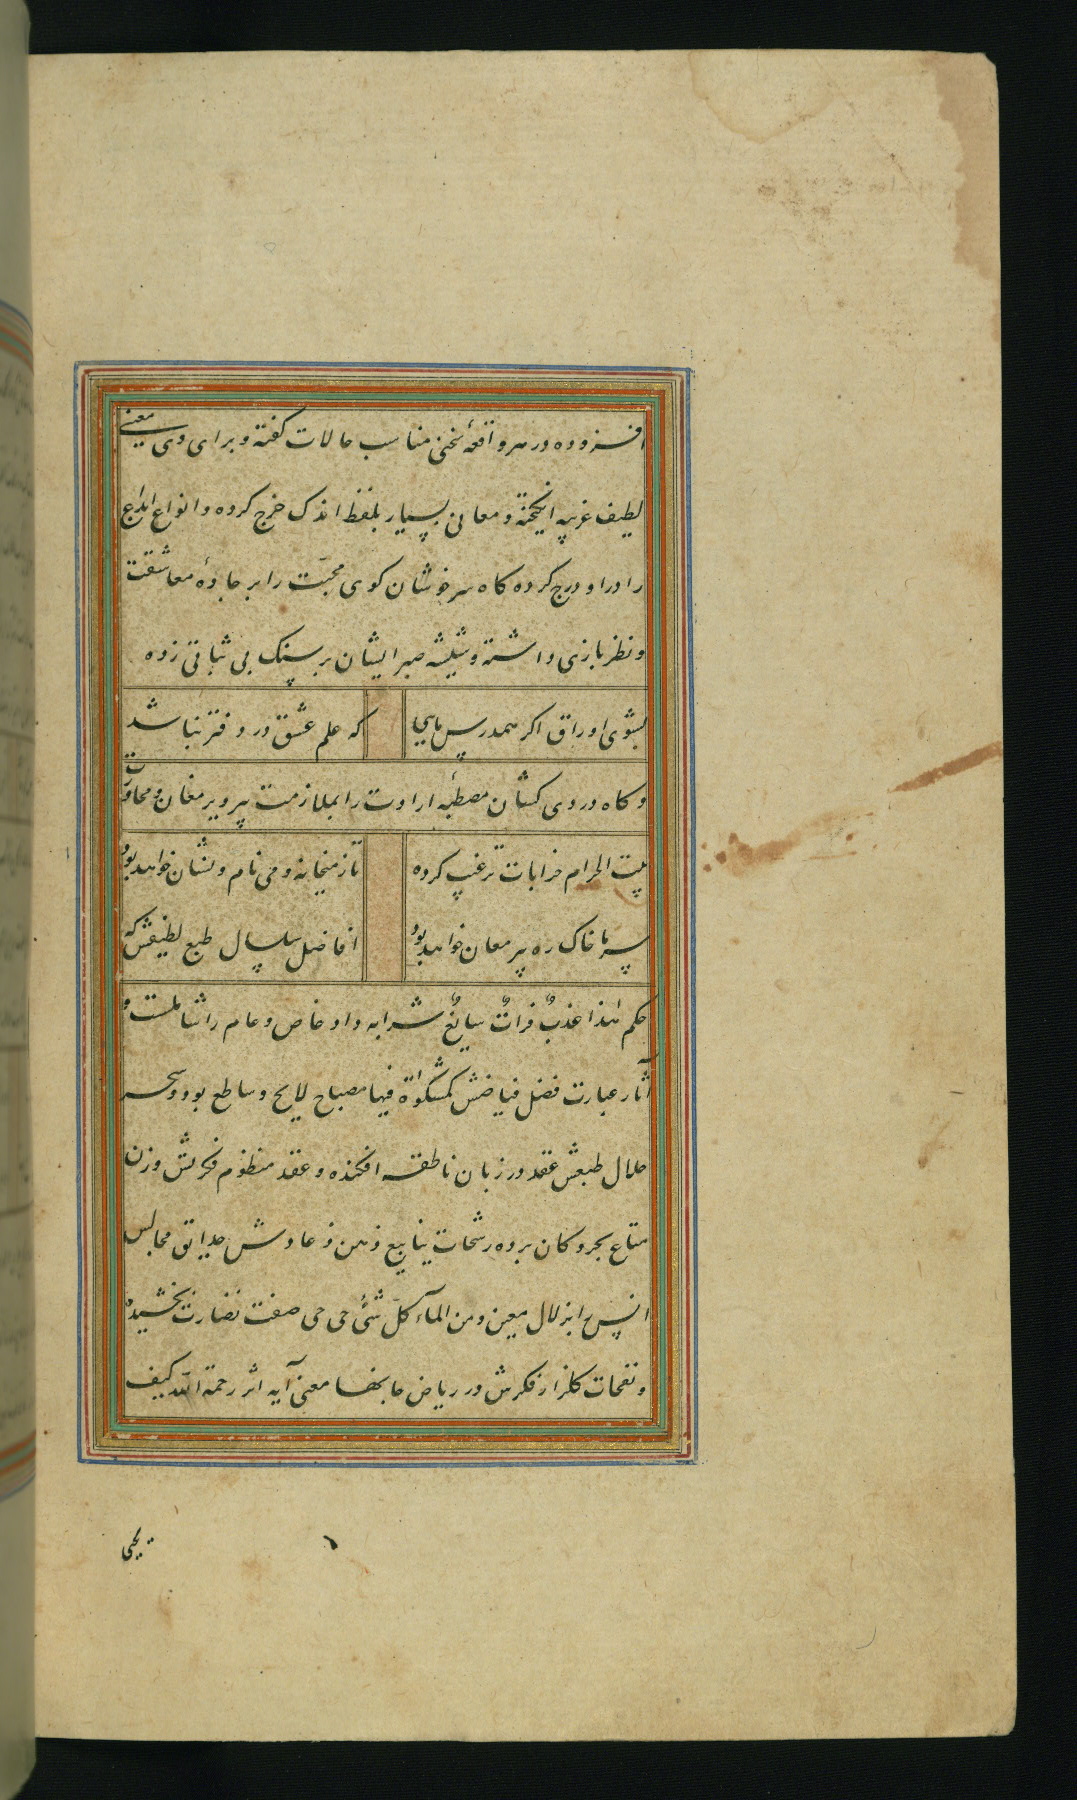 افزوده در هر واقعهٔ سخنی مناسب حالات گفته و برای وی معنی
لطیف غریبه انگیخته و معانی بسیار بلفظ اندک خرج کرده و انواع ابداع
را در او درج کرده کاه سرخوشان کوی محبّت را بر جادهٔ معاشقت
و نظربازی داشته و شیشه صبر ایشان بر سنک بی ثباتی زده
بشوی اوراق اکر همدرس مایی که علم عشق در دفتر نباشد
و کاه دردی کشان مصطبهٔ ارادت را بملازمت پیر دیر مغان و مجاورت
بیت الحرام خرابات ترغیب کرده تا ز میخانه و می نام و نشان خواهد بود
سر ما خاک ره پیر مغان خواهد بود افاضل سلسال طبع لطیفش که
حکم هٰذا عذبٌ فراتٌ سایغٌ شرابه دارد خاص و عام را شاملست و
آثار عبارت فضل فیاضش کمشکوٰة فیها مصباح لایح و ساطع بود و سحر
حلال طبعش عقد در زبان ناطقه افکنده و عقد منظوم فکرتش وزن
متاع بحر و کان برده رشحات ینابیع ذهن وعادش حدایق مجالس
انس را بزلال معین و من المآء کلّ شئٍ حی حی صفت نضارت بخشیده
و نفحات کلزار فکرش در ریاض جانها معنی آیه اثر رحمة الله کیف
یحیی